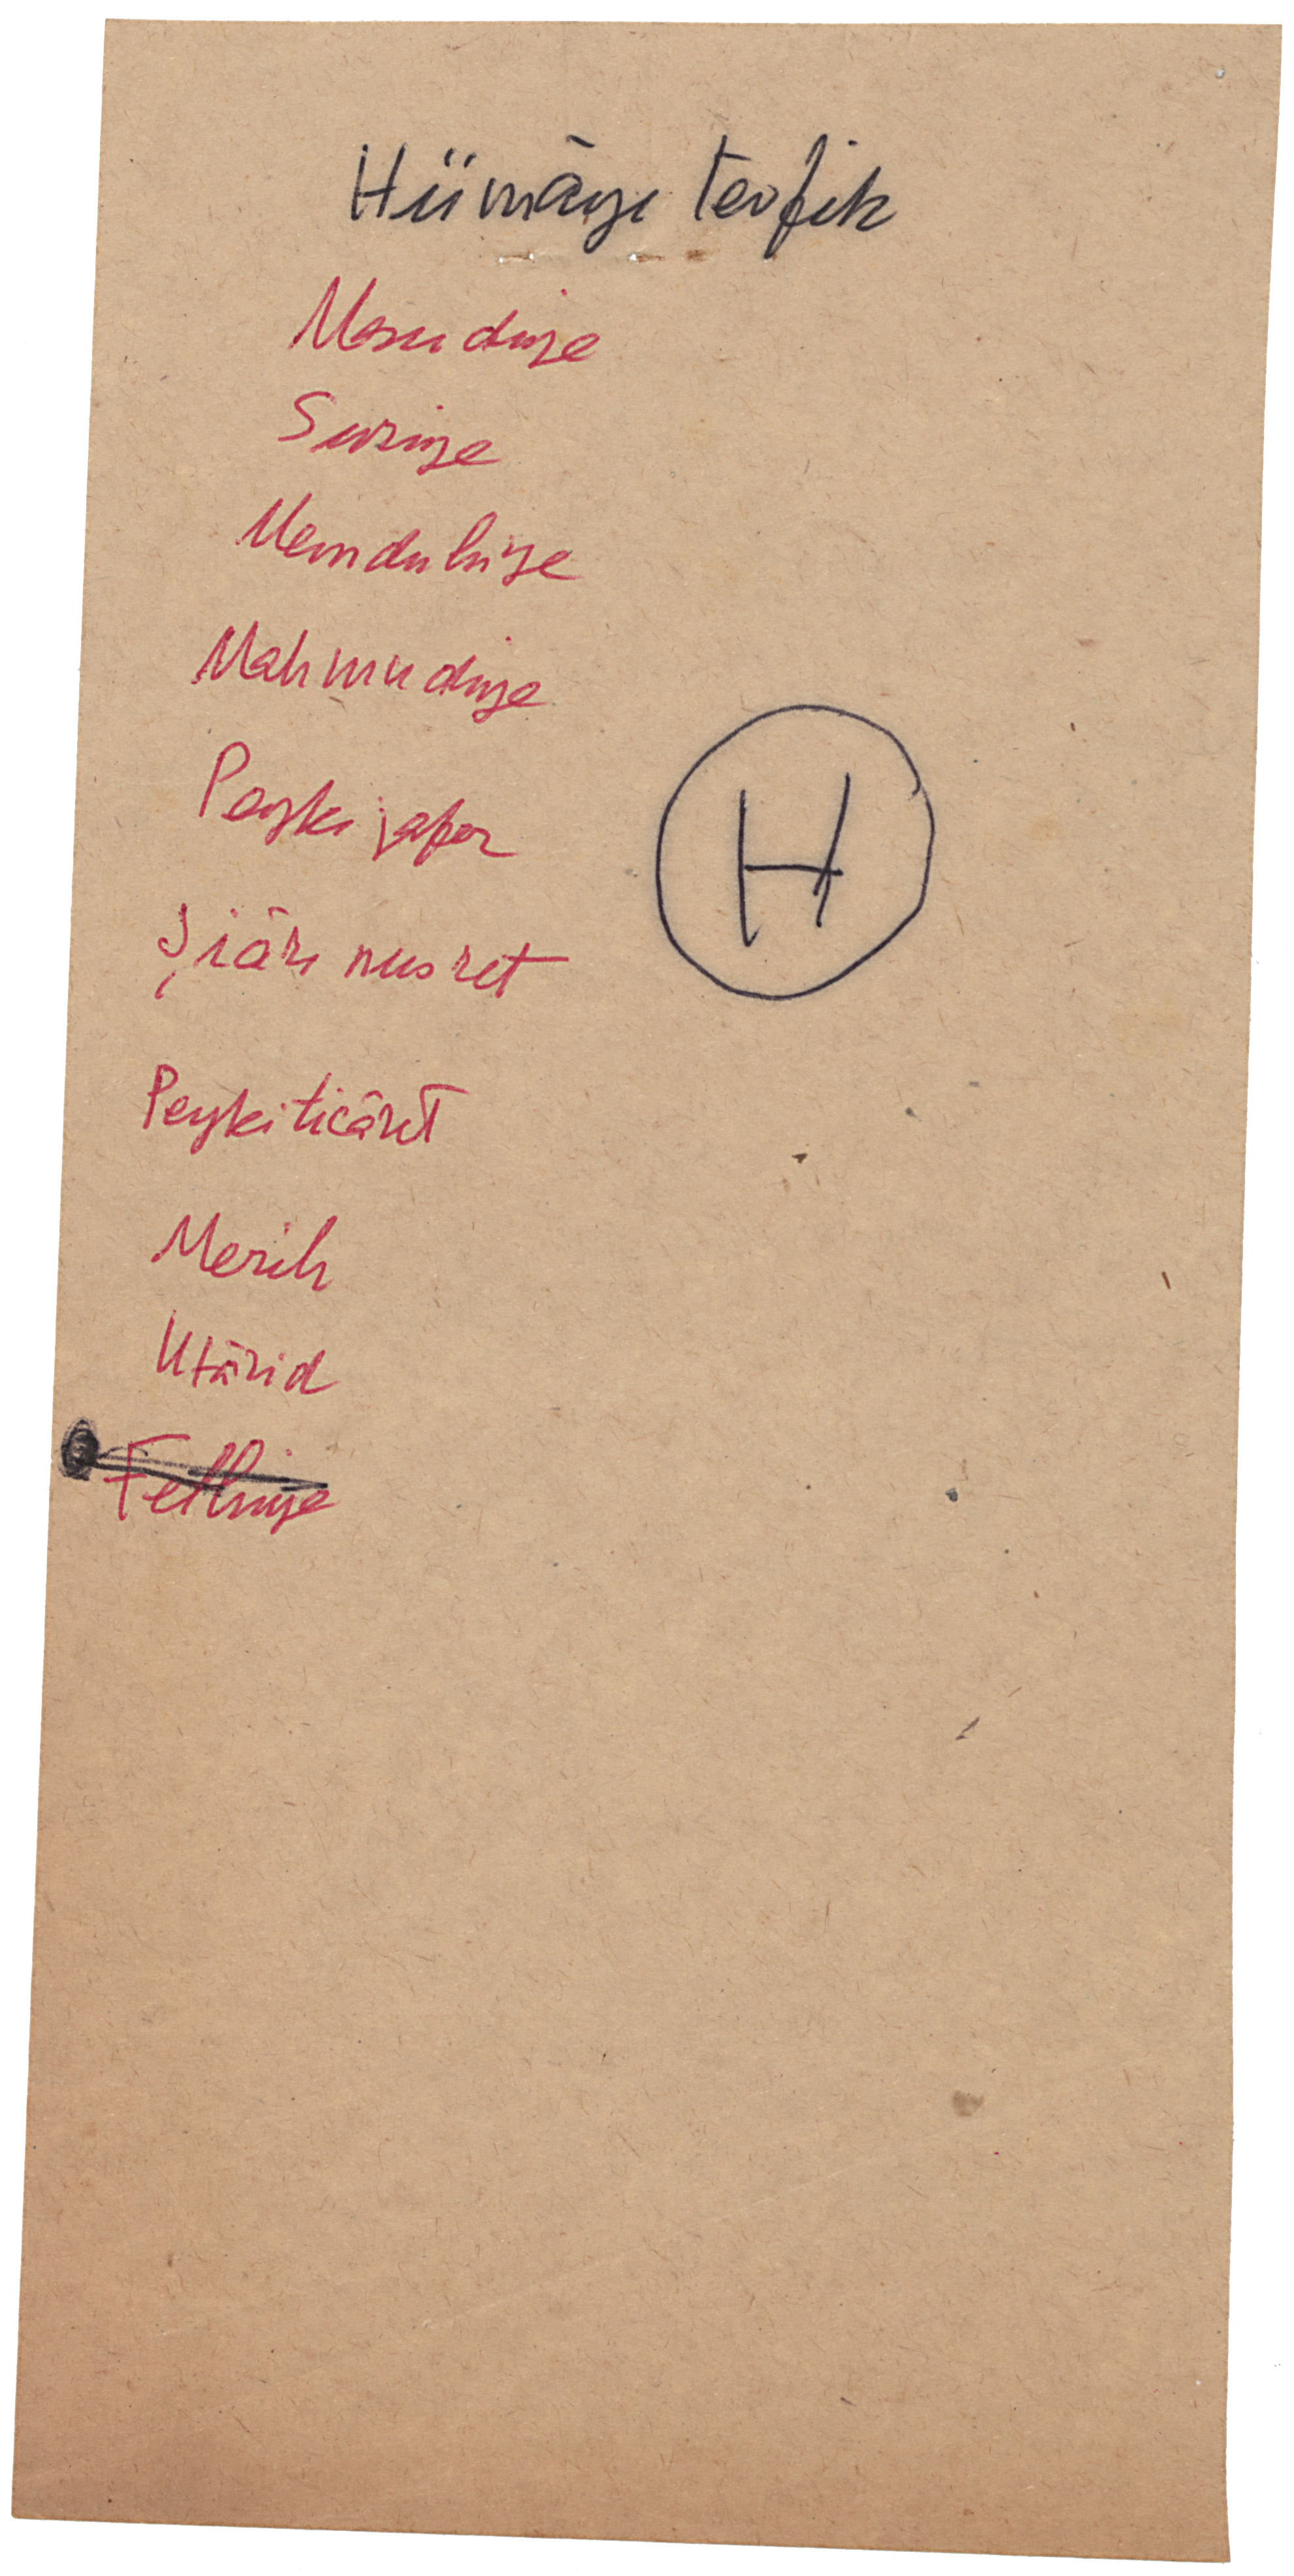 Hümâyı tevfik
Mesudiye
Suriye
Memduhiye
Mahmudiye
Peyki zafer
Şiârı nusret
H
Peyki ticâret
Merih
Utârid
Fethiye